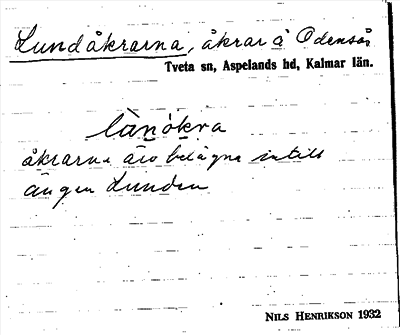 Lundåkrarna, åkrar å Odensö,
Tveta sn, Aspelands hd, Kalmar län.
lànòkra
åkrarna äro belägna intill
ängen Lunden
NILS HENRIKSON 1932